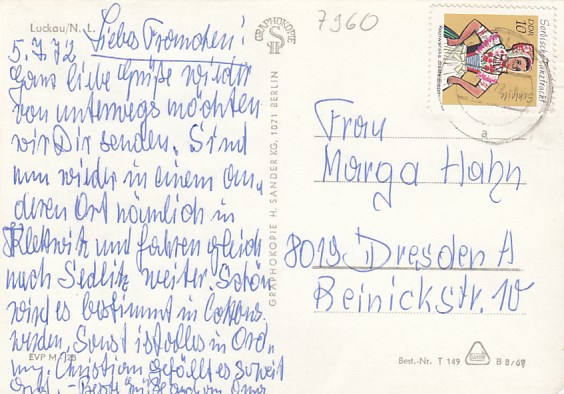 Luckau/N. L.
5.7.72 Liebes Frauchen!
Ganz liebe Grüße wieder
von unterwegs möchten
wir Dir senden. Sind
nun wieder in einem an-
deren Ort nämlich in
und fahren gleich
nach Sedlitz weiter. Schön
wird es bestimmt in
werden. Sonst ist alles in Ord-
nung. Christian gefällt es soweit
gut. –
EVP M
GRAPHOKOPIE
GRAPHOKOPIE H. SANDER KG, 1071 BERLIN
7960
DDR
10
a
Frau
Marga Hahn
8019 Dresden A
Reinickstr. 10
Best.-Nr. T 149
B 8/69